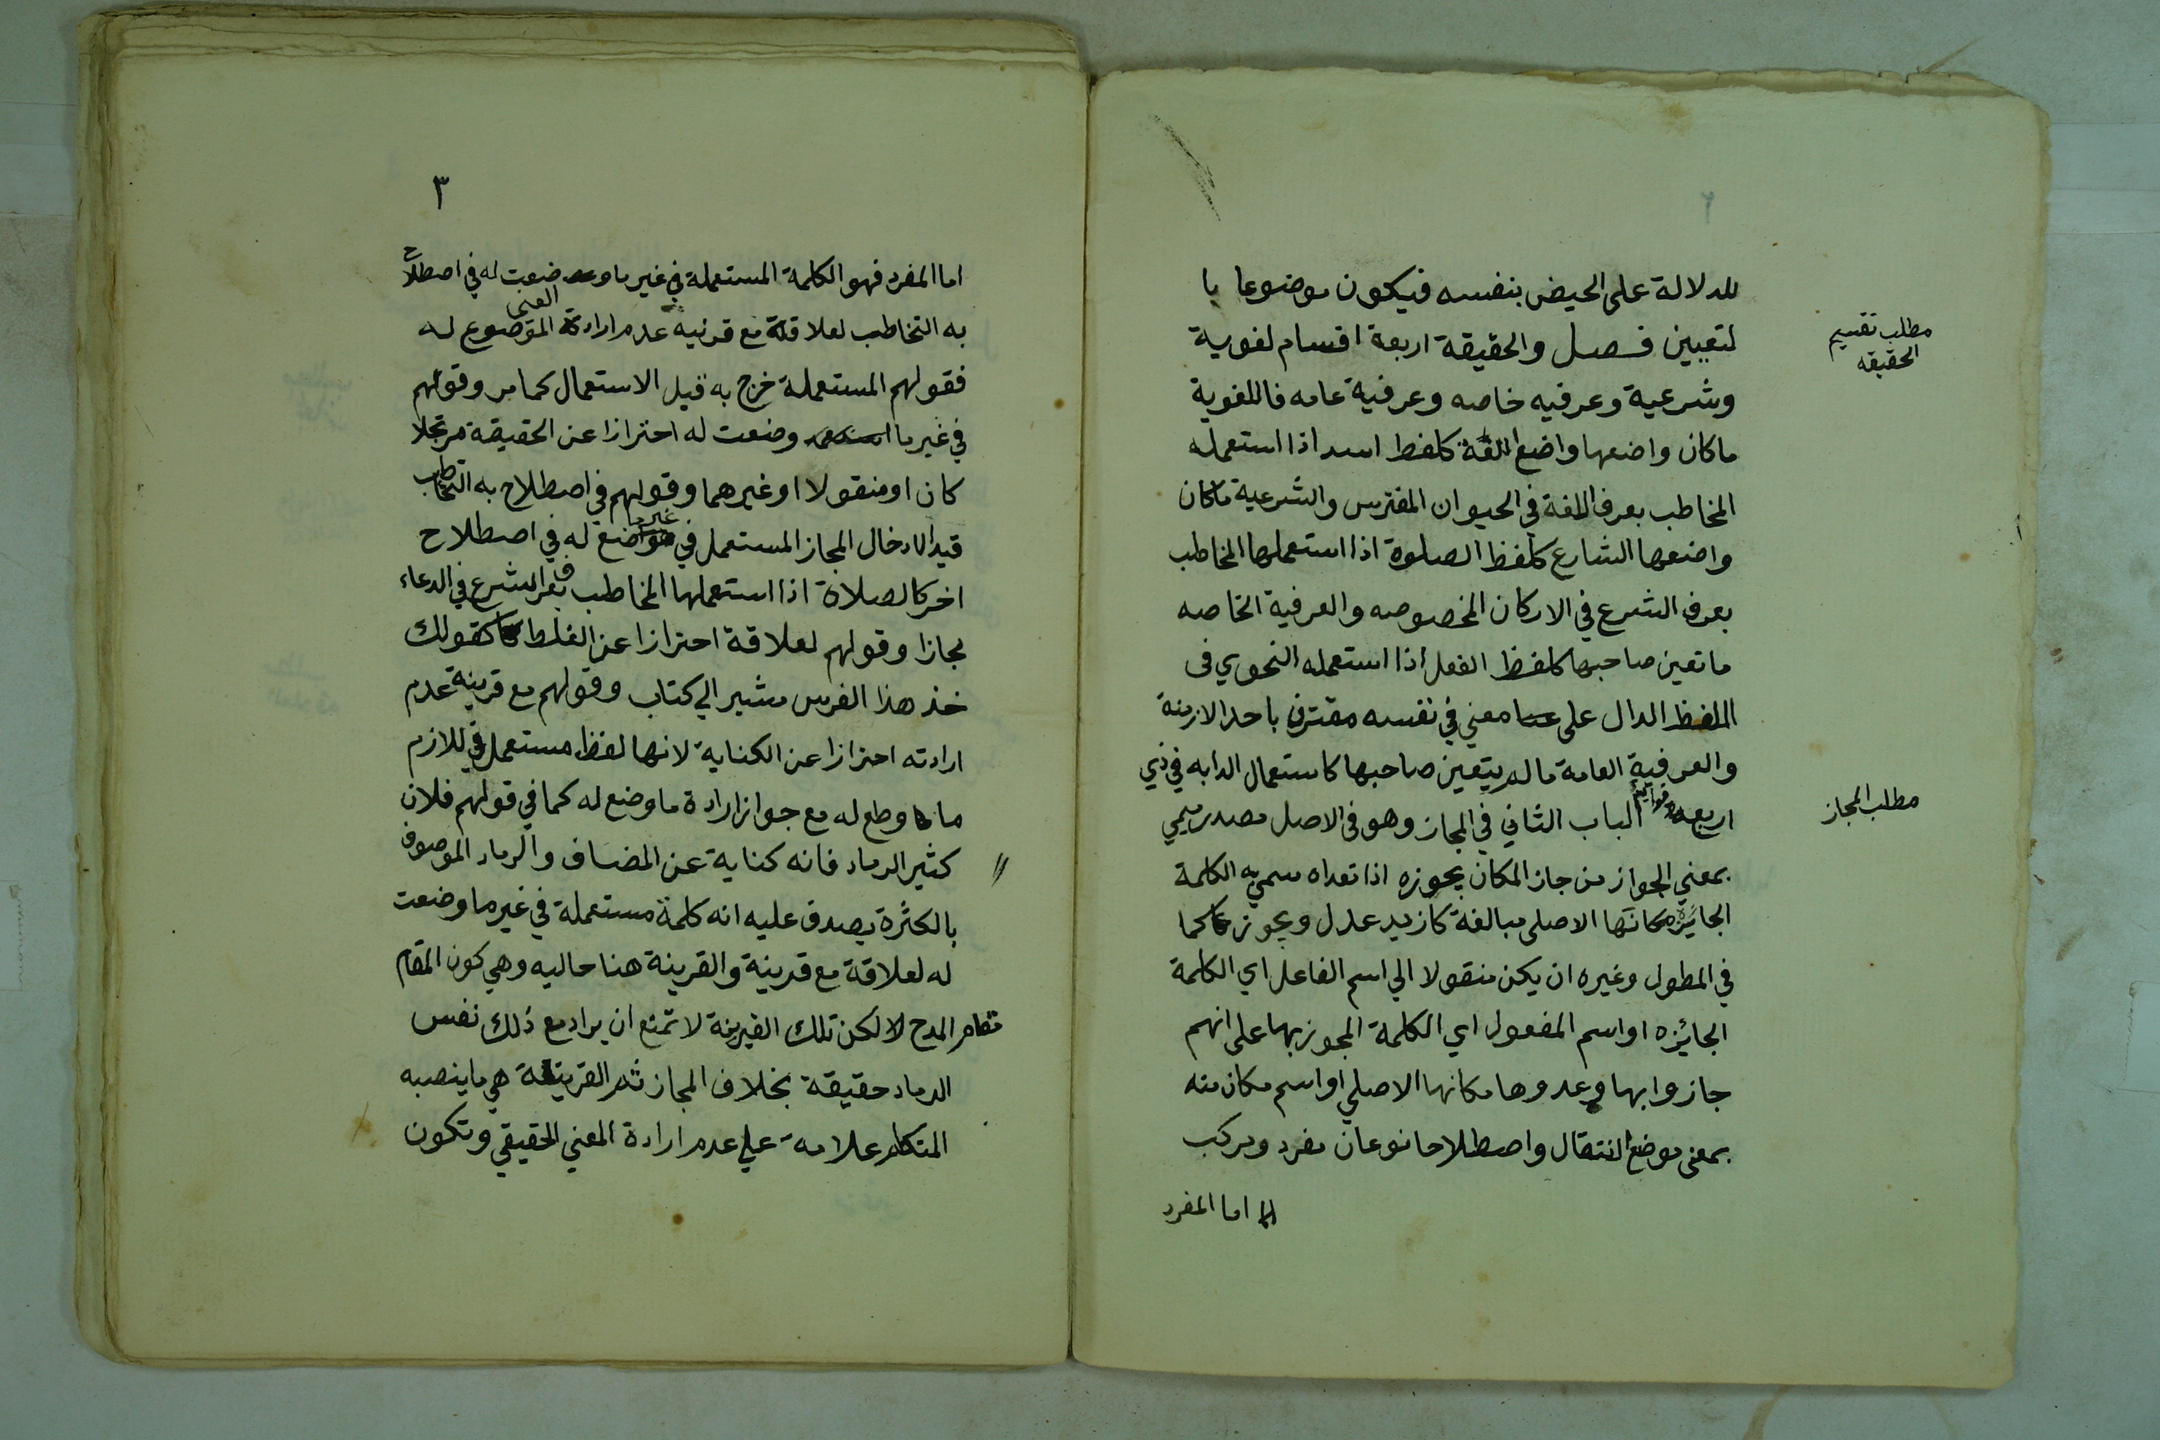 للدلالة على الحيض بنفسه فيكون موضوعا با
لتعيين فصل والحقيقة اربعة اقسام لغوية
مطلب تقسيم
الحقيقه
وشرعية وعرفيه خاصه وعرفية عامه فاللغوية
ماكان واضعها واضع اللغة كلفظ اسد اذا استعمله
المخاطب بعرف اللغة في الحيوان المفترس والشرعية ماكان
واضعها الشارع كلفظ الصلوة اذا استعملها المخاطب
بعرف الشرع في الاركان المخصوصه والعرفية الخاصه
ما تعين صاحبها كلفظ الفعل اذا استعمله النحوي فى
اللفظ الدال على معني في نفسه مقترن باحد الازمنة
والعرفية العامة ما لم يتعين صاحبها كاستعمال الدابه في ذي
اربع قوايم الباب الثاني في المجاز وهو فى الاصل مصدر ميمي
مطلب المجاز
بمعني الجواز من جاز المكان يجوزه اذا تعداه سمي به الكلمة
الجايزة مكانها الاصلى مبالغة كازيد عدل ويجوز كما
في المطول وغيره ان يكن منقولا الي اسم الفاعل اي الكلمة
الجائزه او اسم المفعول اي الكلمة المجوز بها على انهم
جازوا بها وعدوها مكانها الاصلي او اسم مكان منه
بمعنى موضع انتقال واصطلاحا نوعان مفرد ومركب
اما المفرد
٣
اما المفرد فهو الكلمة المستعملة في غير ما وضعت له في اصطلاح
به التخاطب لعلاقة مع قرنيه عدم ارادة المعنى الموضوع له
فقولهم المستعملة خرج به قيل الاستعمال كما مر وقولهم
في غير ما وضعت له احترازا عن الحقيقة مرتجلا
كان او منقولا او غيرهما وقولهم في اصطلاح به التخاطب
قيد لادخال المجاز المستعمل في غير ما وضع له في اصطلاح
اخر كالصلاة اذا استعملها المخاطب بعرف الشرع في الدعاء
مجازا وقولهم لعلاقة احترازا عن الغلط كقولك
خذ هذا الفرس مشير الي كتاب وقولهم مع قرينة عدم
ارادته احترازا عن الكناية لانها لفظ مستعمل في للازم
ما وطع له مع جواز ارادة ما وضع له كما في قولهم فلان
كثير الرماد فانه كناية عن المضاف والرماد الموصوف
بالكثرة يصدق عليه انه كلمة مستعملة في غير ما وضعت
له لعلاقة مع قرينة والقرينة هنا حاليه وهي كون المقام
مقام المدح لكن تلك القرينة لا تمنع ان يراد مع ذلك نفس
الرماد حقيقة بخلاف المجاز ثم القرينة هي ما ينصبه
المتكلم علامة علي عدم ارادة المعني الحقيقي وتكون